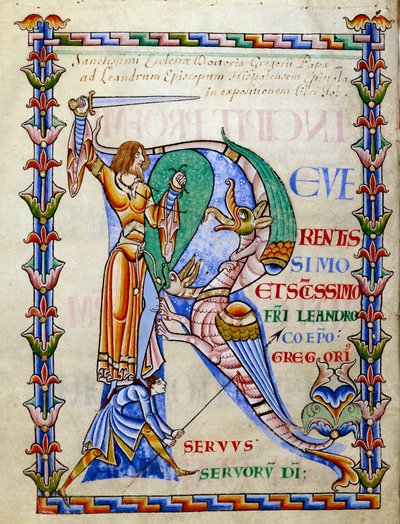 Sanctissimi Ecclesiæ Doctoris Gregorii Papæ
ad Leandrum Episcopum Hispalensem Epistola
in expositionem libri Job.
R EVE
RENTIS
SIMO
ET SC̄ISSIMO
FR̄I LEANDRO
COEP̄O:
GREGORIꝰ
SERVVS
SERVORV̄ DI;